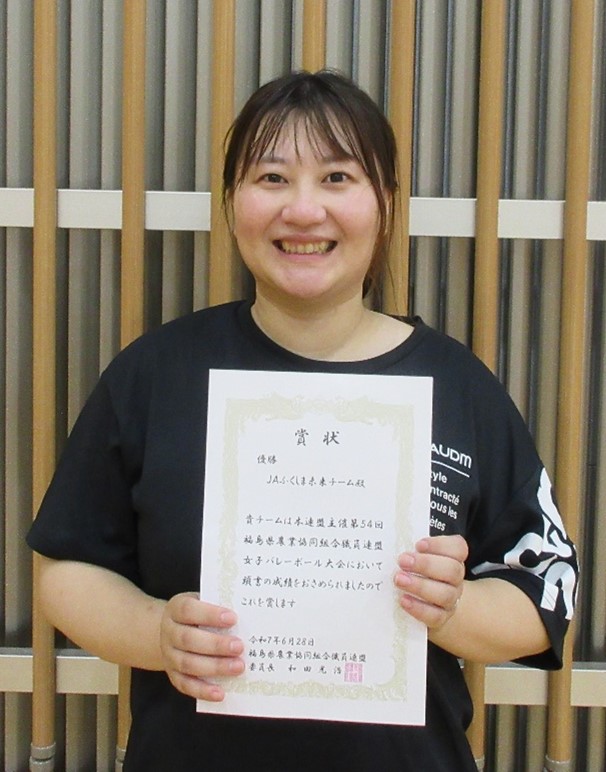 賞状
優勝
JAふくしま未来チーム殿
貴チームは本連盟主催第54回
福島県農業協同組合職員連盟
女子バレーボール大会において
頭書の成績をおさめられましたので
これを賞します
令和7年6月28日
福島県農業協同組合職員連盟
委員長 和田光浩
AUDM
tyle
ntracté
ous les
ètes